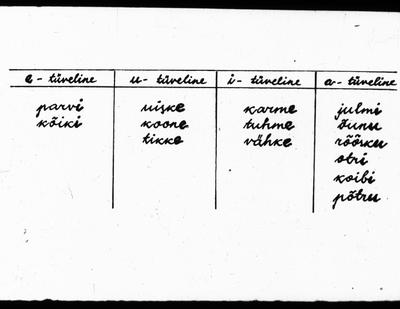 e - tüveline u - tüveline i - tüveline a - tüveline
parvi uiske karme julmi
kõiki koone tuhme õunu
tikke vähke rõõsku
otri
koibi
põtru